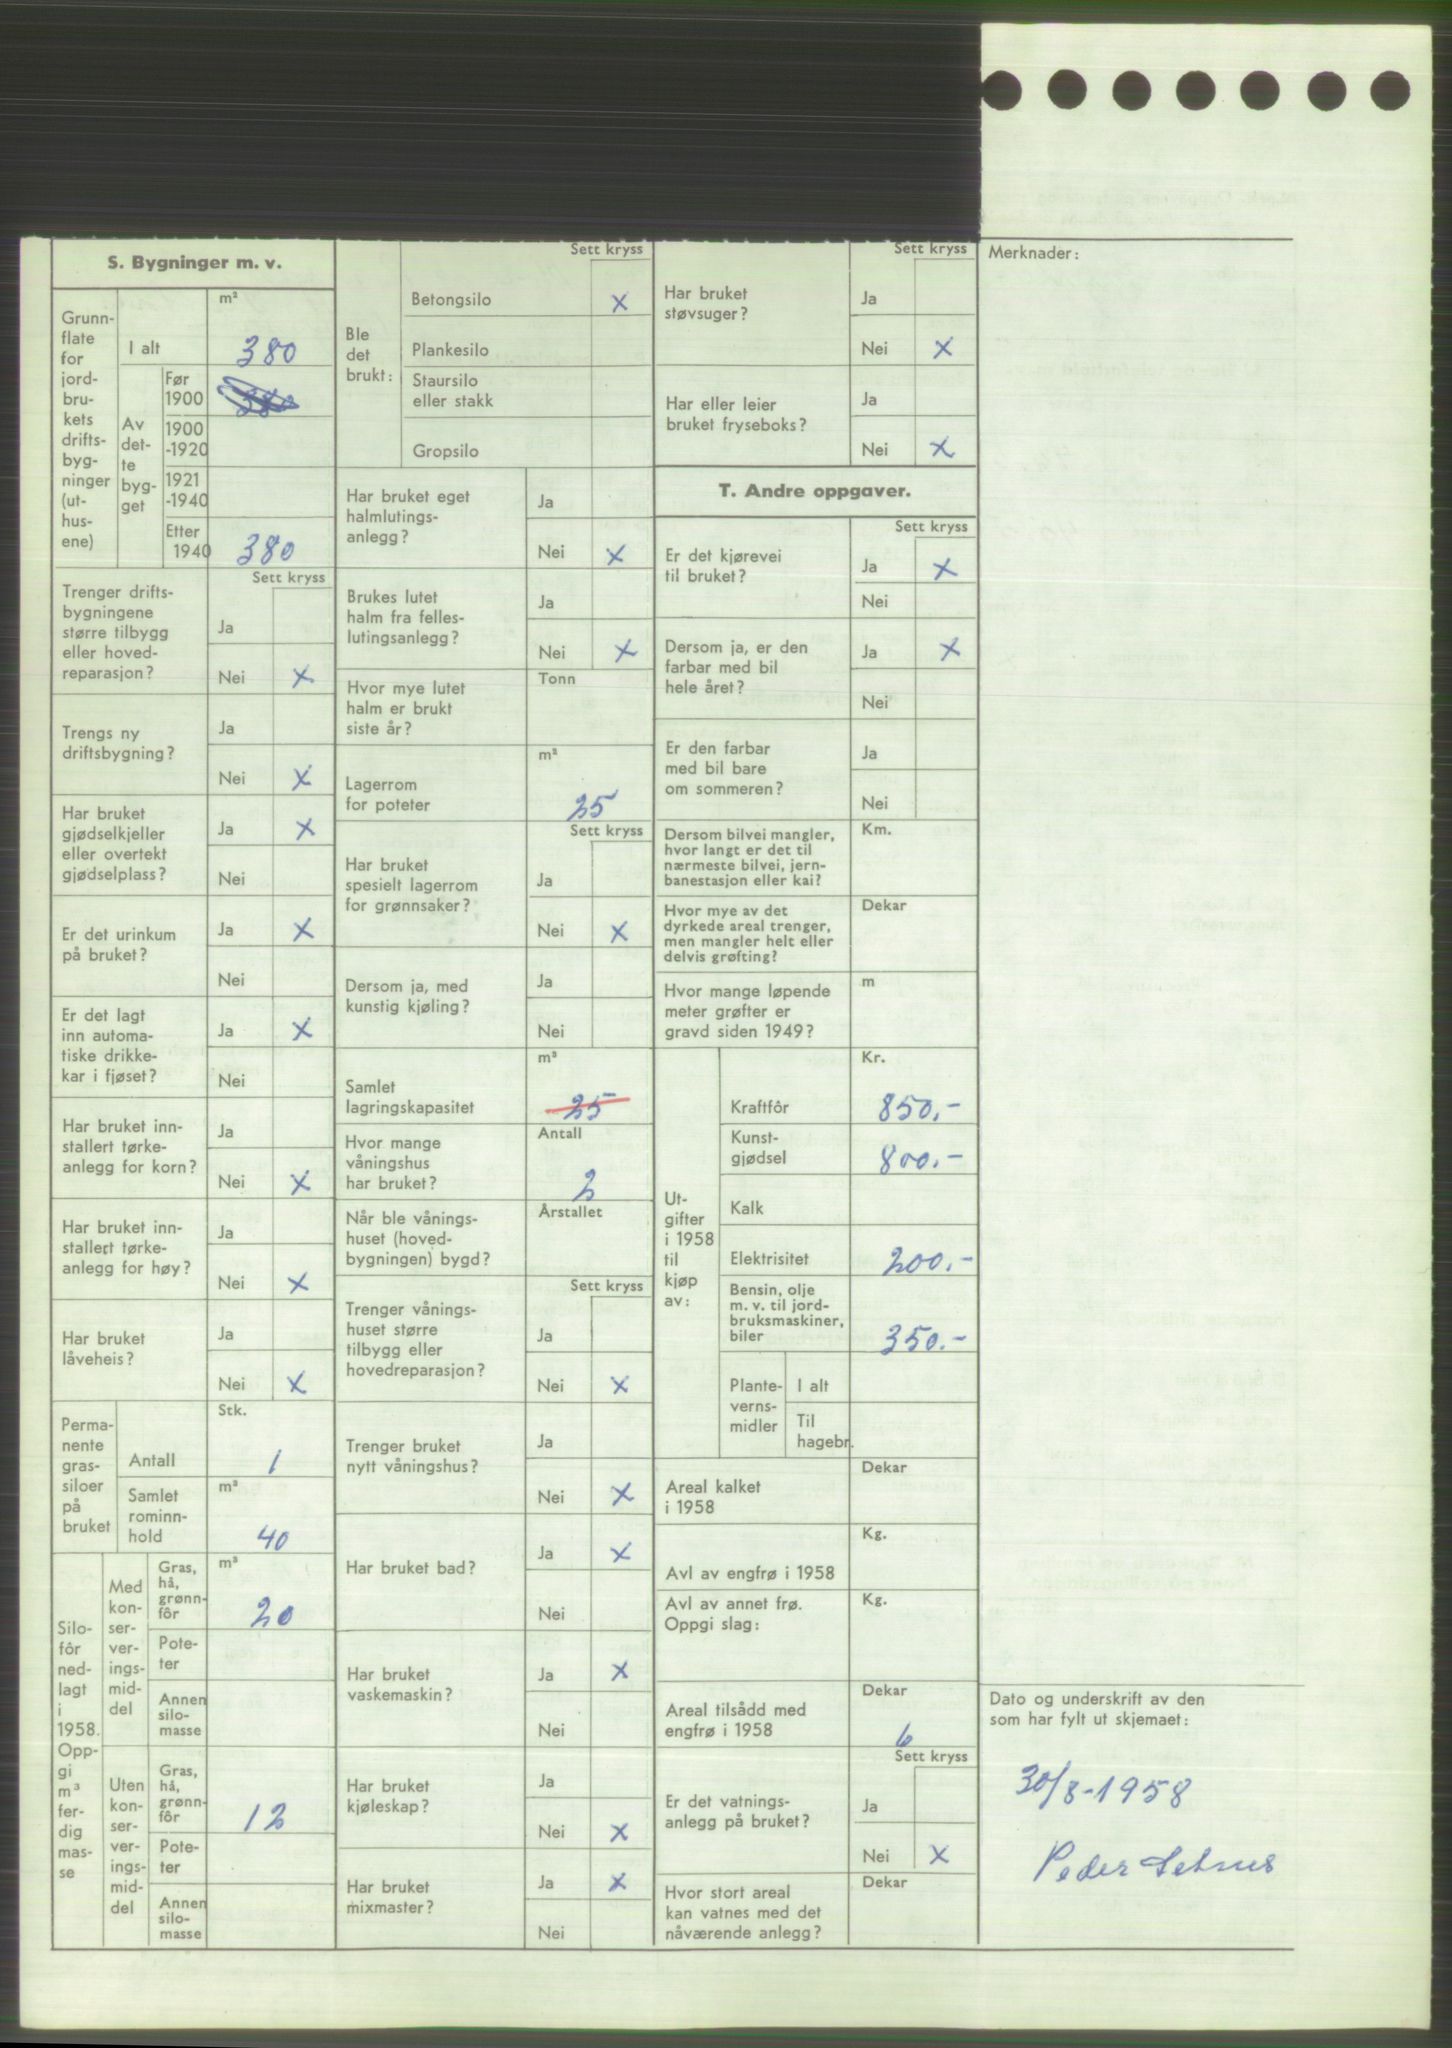 S. Bygninger m. v.
Grunn-
flate
for
jord-
bru-
kets
drifts-
byg-
ninger
(ut-
hus-
ene)
m²
I alt
380
Av
det-
te
byg-
get
Før
1900
380
1900
-1920
1921
-1940
Etter
1940
380
Sett kryss
Trenger drifts-
bygningene
større tilbygg
eller hoved-
reparasjon?
Ja
Nei X
Trengs ny
driftsbygning?
Ja
Nei X
Har bruket
gjødselkjeller
eller overtekt
gjødselplass?
Ja X
Nei
Er det urinkum
på bruket?
Ja X
Nei
Er det lagt
inn automa-
tiske drikke-
kar i fjøset?
Ja X
Nei
Har bruket inn-
stallert tørke-
anlegg for korn?
Ja
Nei X
Har bruket inn-
stallert tørke-
anlegg for høy?
Ja
Nei X
Har bruket
låveheis?
Ja
Nei X
Perma-
nente
gras-
siloer
på
bruket
Stk.
Antall
1
Samlet
rominn-
hold
m³
40
Silo-
fôr
ned-
lagt
i
1958.
Opp-
gi
m³
fer-
dig
mas-
se
Med
kon-
ser-
ver-
ings-
mid-
del
Gras,
hå,
grønn-
fôr
m³
20
Pote-
ter
Annen
silo-
masse
Uten
kon-
ser-
ver-
ings-
mid-
del
Gras,
hå,
grønn-
fôr
12
Pote-
ter
Annen
silo-
masse
Sett kryss
Ble
det
brukt:
Betongsilo X
Plankesilo
Staursilo
eller stakk
Gropsilo
Har bruket eget
halmlutings-
anlegg?
Ja
Nei X
Brukes lutet
halm fra felles-
lutingsanlegg?
Ja
Nei X
Hvor mye lutet
halm er brukt
siste år?
Tonn
Lagerrom
for poteter
m³
25
Sett kryss
Har bruket
spesielt lagerrom
for grønnsaker?
Ja
Nei X
Dersom ja, med
kunstig kjøling?
Ja
Nei
Samlet
lagringskapasitet
m³
25
Hvor mange
våningshus
har bruket?
Antall
2
Når ble vånings-
huset (hoved-
bygningen) bygd?
Årstallet
Sett kryss
Trenger vånings-
huset større
tilbygg eller
hovedreparasjon?
Ja
Nei X
Trenger bruket
nytt våningshus?
Ja
Nei X
Har bruket bad?
Ja X
Nei
Har bruket
vaskemaskin?
Ja X
Nei
Har bruket
kjøleskap?
Ja
Nei X
Har bruket
mixmaster?
Ja X
Nei
Sett kryss
Har bruket
støvsuger?
Ja
Nei X
Har eller leier
bruket fryseboks?
Ja
Nei X
T. Andre oppgaver.
Sett kryss
Er det kjørevei
til bruket?
Ja X
Nei
Dersom ja, er den
farbar med bil
hele året?
Ja X
Nei
Er den farbar
med bil bare
om sommeren?
Ja
Nei
Dersom bilvei mangler,
hvor langt er det til
nærmeste bilvei, jern-
banestasjon eller kai?
Km.
Hvor mye av det
dyrkede areal trenger,
men mangler helt eller
delvis grøfting?
Dekar
Hvor mange løpende
meter grøfter er
gravd siden 1949?
m
Ut-
gifter
i 1958
til
kjøp
av:
Kr.
Kraftfôr
850,-
Kunst-
gjødsel
800.-
Kalk
Elektrisitet
200.-
Bensin, olje
m. v. til jord-
bruksmaskiner,
biler
350.-
Plante-
verns-
midler
I alt
Til
hagebr.
Areal kalket
i 1958
Dekar
Avl av engfrø i 1958
Kg.
Avl av annet frø.
Oppgi slag:
Kg.
Areal tilsådd med
engfrø i 1958
Dekar
6
Sett kryss
Er det vatnings-
anlegg på bruket?
Ja
Nei X
Hvor stort areal
kan vatnes med det
nåværende anlegg?
Dekar
Merknader:
Dato og underskrift av den
som har fylt ut skjemaet:
30/8-1958
Peder